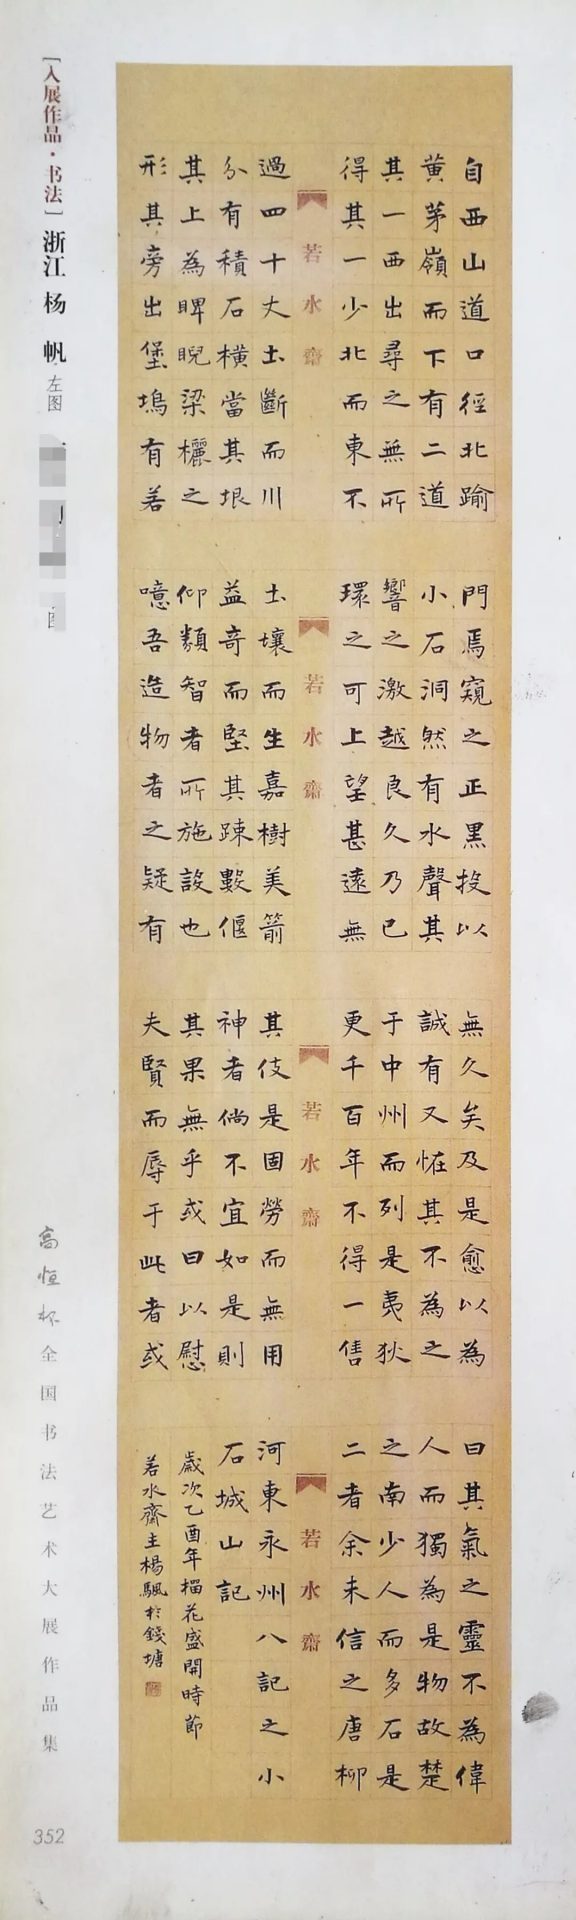 [入展作品·书法] 浙江 杨帆 左图
自西山道口徑北踰
黄茅嶺而下有二道
其一西出尋之無所
得其一少北而東不
若水齋
過四十丈土斷而川
分有積石横當其垠
其上為睥睨梁欐之
形其旁出堡塢有若
門焉窺之正黑投以
小石洞然有水聲其
響之激越良久乃已
環之可上望甚遠無
若水齋
土壤而生嘉樹美箭
益奇而堅其踈數偃
仰類智者所施設也
噫吾造物者之疑有
無久矣及是愈以為
誠有又恠其不為之
于中州而列是夷狄
更千百年不得一售
若水齋
其伎是固勞而無用
神者倘不宜如是則
其果無乎或曰以慰
夫賢而辱于此者或
曰其氣之靈不為偉
人而獨為是物故楚
之南少人而多石是
二者余未信之唐柳
若水齋
河東永州八記之小
石城山記
歲次乙酉年榴花盛開時節
若水齋主楊颿於錢塘
高恒杯全国书法艺术大展作品集
352